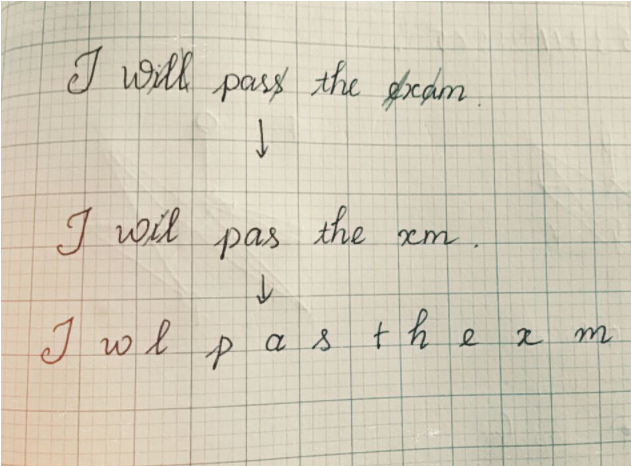 I will pass the exam.
↓
I wil pas the xm.
↓
I w l p a s t h e x m